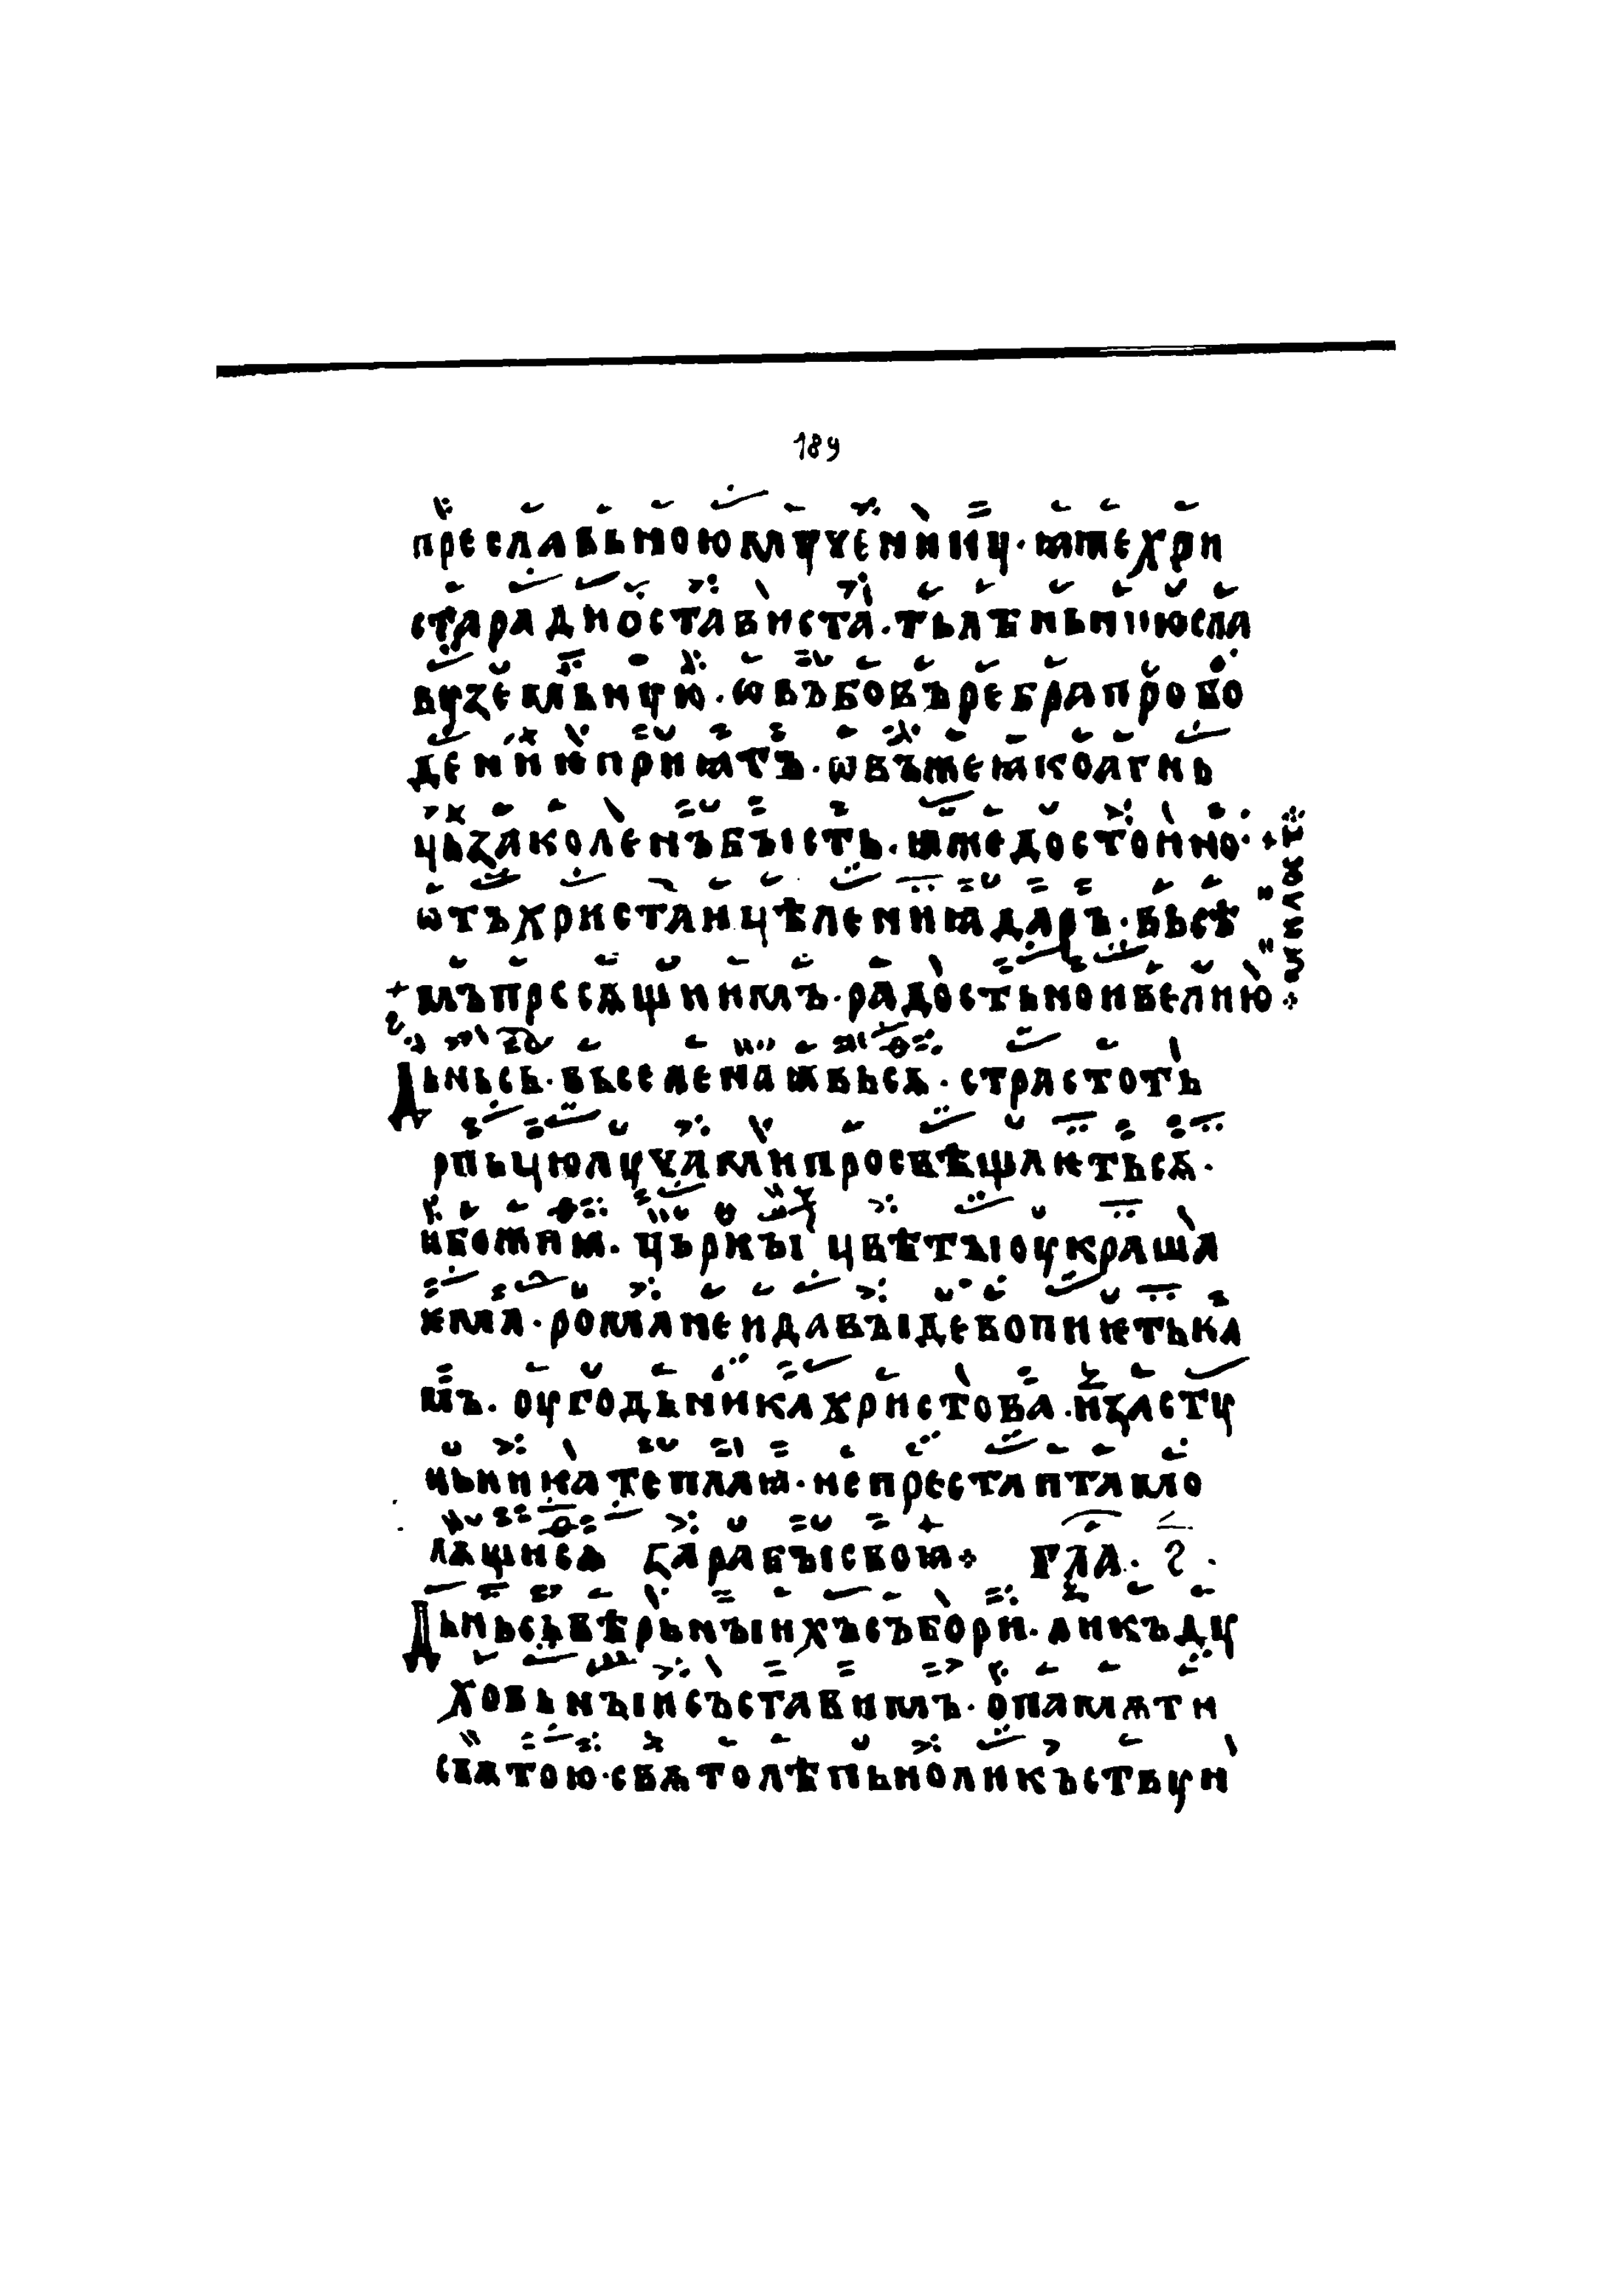 189
преславьною мꙋчениикꙋ · ꙗже хри
ста ради остависта · тьлѣньнꙋю сла
вꙋ ꙁемльнꙋю · ѡвъ бо въ ребра пробо
дениѥ приꙗтъ · ѡвъ же ꙗко агнь
ць ꙁаколенъ бꙑсть · ꙗже достоино ·
ѡтъ христа ицѣлениꙗ даръ · вьсѣ
мъ просѧщиимъ · радость мои велию
Дьньсь · вьселенаꙗ вьсѧ · страстоть
рпьцю лꙋчами просвѣщаѥтьсѧ ·
и божиꙗ · цьркꙑ цвѣтꙑ оукраша
ѥма · романе и давꙑде вопиѥть ка
мъ · оугодьника христова · и ꙁастꙋ
пьника теплаꙗ · не престаита мо
лѧщисѧ ꙁа рабꙑ своꙗ гла · ѕ ·
Дьньсь вѣрьнꙑихъ събори · ликъ дꙋ
ховьнꙑи съставимъ · о памѧти
свѧтою · свѧтолѣпьно ликъствꙋи